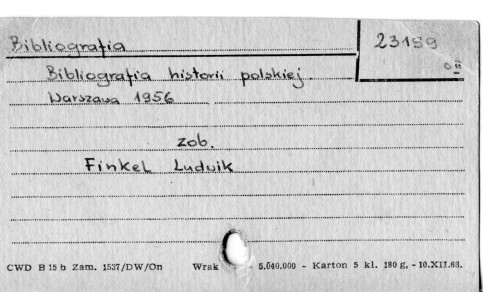 Bibliografia 23189
c II
Bibliografia historii polskiej.
Warszawa 1956
zob.
Finkel Ludwik
CWD B 15 b Zam. 1537/DW/On Wrak - 5.040.000 - Karton 5 kl. 180 g. - 10.XII.63.